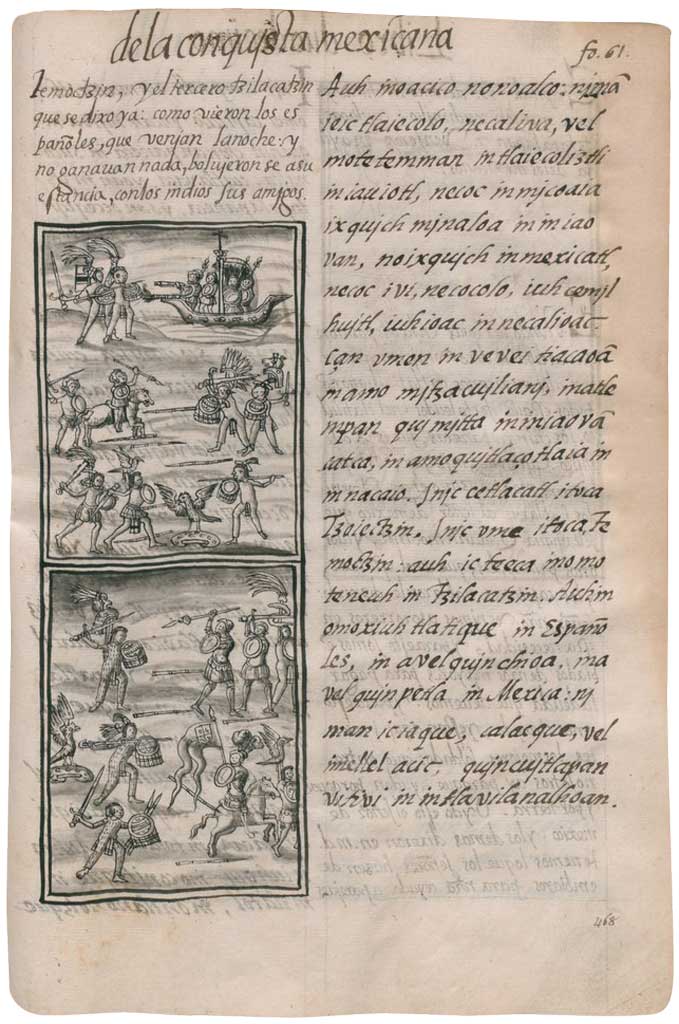 dela conquista mexicana
fo. 61.
temoctzin, y el tercero tzilacatzin
que se dixo ya: como vieron los es
pañoles, que venjan la noche: y
no ganauan nada, boluieron se a su
estancia, con los indios sus amigos.
Auh in oacico nonoalco: njmā
ie ic tlaiecolo, necaliva, vel
motetemman in tlaiecoliztli
in iauiotl, necoc in mjcoaia
ixqujch mjnaloa in iniao
van, no ixqujch in mexicatl,
necoc ivi, necocolo, iuh cemjl
hujtl, iuh ioac in necalioac:
Çan vmen in vevei tiacaoā
in amo mjtzacujlianj, in atle
inpan qujmjtta in iniaovā
catca, in amo quitlaçotlaia in
innacaio. Injc ce tlacatl itoca
Tzoiectzin. Injc vme itoca, Te
moctzin: auh ic teeca in omo
teneuh in Tzilacatzin. Auh in
omoxiuhtlatique in Españo
les, in avel qujnchioa, in a
vel qujnpetla in Mexica: nj
man ic iaque, calacque, vel
inellel acic, qujncujtlapan
vitivi in intlavilanalhoan.
468